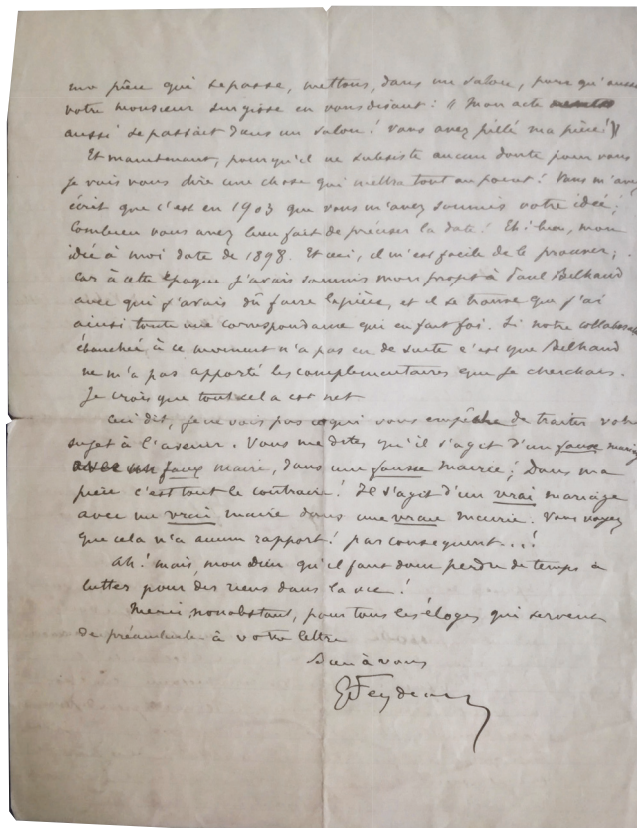 une pièce qui se passe, mettons, dans un salon, pour qu'aussi
votre monsieur surgisse en vous disant : "Mon acte
aussi se passait dans un salon ! vous avez pillé ma pièce !"
Et maintenant, pour qu'il ne subsiste aucun doute pour vous
je vais vous dire une chose qui mettra tout au point ! Vous m'avez
écrit que c'est en 1903 que vous m'avez soumis votre idée ;
Combien vous avez bien fait de préciser la date ! Eh ! bien, mon
idée à moi date de 1898. Et ceci, il m'est facile de le prouver ;
car à cette époque j'avais soumis mon projet à Paul Bilhaud
avec qui j'avais dû faire la pièce, et il se trouve que j'ai
ainsi toute une correspondance qui en fait foi. Si notre collaboration
ébauchée à ce moment n'a pas eu de suite c'est que Bilhaud
ne m'a pas apporté les complémentaires que je cherchais.
Je crois que tout cela est net
Ceci dit, je ne vois pas ce qui vous empêche de traiter votre
sujet à l'avenir. Vous me dites qu'il s'agit d'un faux mariage
avec un faux maire, dans une fausse mairie ; Dans ma
pièce c'est tout le contraire ! Il s'agit d'un vrai mariage
avec un vrai maire dans une vraie mairie. Vous voyez
que cela n'a aucun rapport ! par conséquent...!
Ah ! mais mon Dieu qu'il faut donc perdre de temps à
lutter pour des riens dans la vie !
Merci nonobstant, pour tous les éloges qui servent
de préambule à votre lettre
Bien à vous
G Feydeau